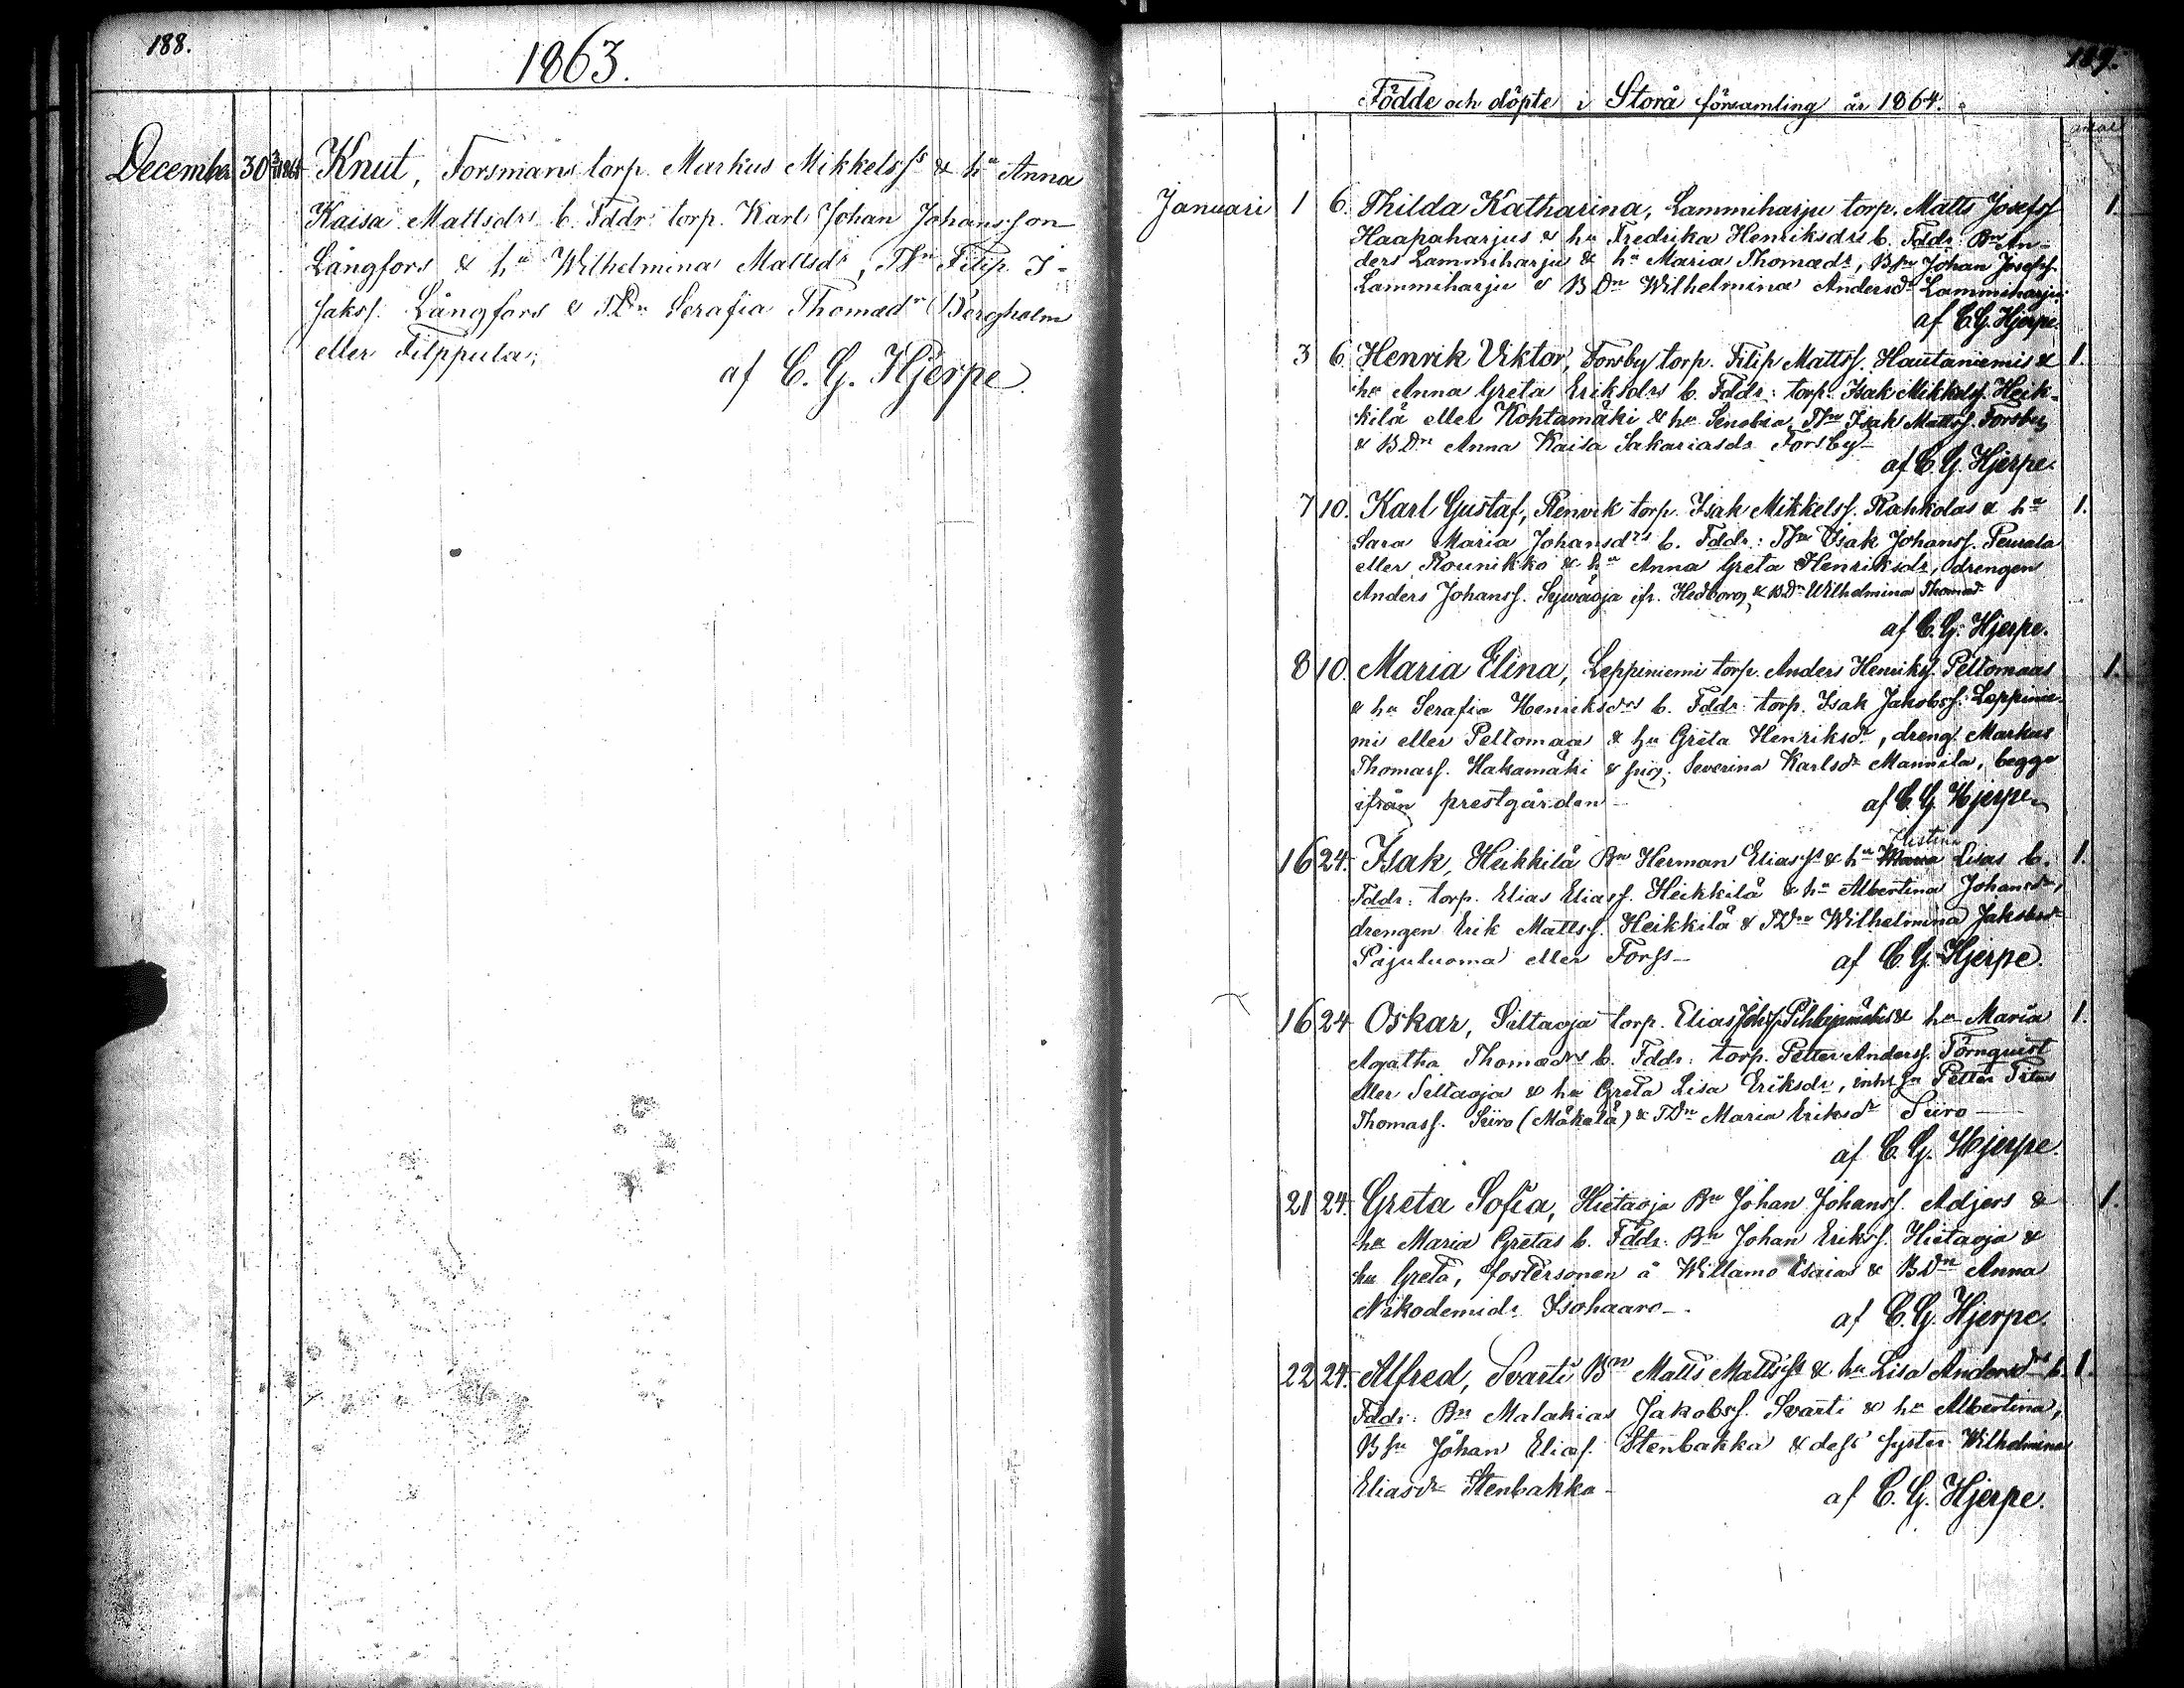 188.
1863.
December 30 3/1 1864 Knut, Forsmans torp. Markus Mikkelsss & hu Anna
Kaisa Mattsdrs b. Fddr: torp. Karl Johan Johansson
Långfors & hu Wilhelmina Mattsdr, TSn Filip I-
sakss. Långfors & TDn Serafia Thomædr Bergholm
eller Filppula,
af C. G. Hjerpe.
189.
Födde och döpte i Storå församling år 1864.
Januari 1 6. Thilda Katharina, Lammiharju torp. Matts Josefss 1.
Haapaharjus & hu Fredrika Henriksdrs b. Fddr: Bn An-
ders Lammiharju & hu Maria Thomædr, BSn Johan Josefss.
Lammiharju & BDn Wilhelmina Andersdr Lammiharju
af C. G. Hjerpe.
3 6. Henrik Viktor, Forsby torp. Filip Mattss. Hautaniemis & 1.
hu Anna Greta Eriksdrs b. Fddr: torp. Isak Mikkelss. Heik-
kilä eller Kohtamäki & hu Senobia, TSn Isak Mattss. Forsby,
& BDn Anna Kaisa Sakariasdr Forsby-
af C. G. Hjerpe.
7 10. Karl Gustaf, Renvik torp. Isak Mikkelss. Rahkolas & hu 1.
Sara Maria Johansdrs b. Fddr: TSn Isak Johanss. Peurala
eller Rounikko & hu Anna Greta Henriksdr, drengen
Anders Johanss. Sywäoja ifr. Hedborg, & BDn Wilhelmina Thomædr
af C. G. Hjerpe.
8 10. Maria Elina, Leppiniemi torp. Anders Henrikss. Peltomaas 1.
& hu Serafia Henriksdrs b. Fddr: torp. Isak Jakobss. Leppinie-
mi eller Peltomaa & hu Greta Henriksdr, dreng. Markus
Thomass. Hakamäki & pig. Severina Karlsdr Mannila, begge
ifrån prestgården-
af C. G. Hjerpe.
Kristina
16 24. Isak, Heikkilä Bn Herman Eliasss & hu Maria Lisas b. 1.
Fddr: torp. Elias Eliass. Heikkilä & hu Albertina Johansdr,
drengen Erik Mattss. Heikkilä & TDn Wilhelmina Jakobsdr
Pajuluoma eller Forss-
af C. G. Hjerpe.
16 24 Oskar, Siltaoja torp. Elias Johss Pihlajamäkis & hu Maria 1.
Agatha Thomædrs b. Fddr: torp. Petter Anderss. Törnquist
eller Siltaoja & hu Greta Lisa Eriksdr, inhs Sn Petter Titus
Thomass. Siiro (Mäkelä) & TDn Maria Eriksdr Siiro-
af C. G. Hjerpe.
21 24. Greta Sofia, Hietaoja Bn Johan Johanss. Adjers & 1.
hu Maria Gretas b. Fddr: Bn Johan Erikss. Hietaoja &
hu Greta, fostersonen å Willamo Esaias & BDn Anna
Nikodemidr Isohaaro-.
af C. G. Hjerpe.
22 24. Alfred, Svarti Bn Matts Mattsss & hu Lisa Andersdrs b. 1.
Fddr: Bn Malakias Jakobss. Svarti & hu Albertina,
BSn Johan Eliass. Stenbakka & dess syster Wilhelmina
Eliasdr Stenbakka-
af C. G. Hjerpe.